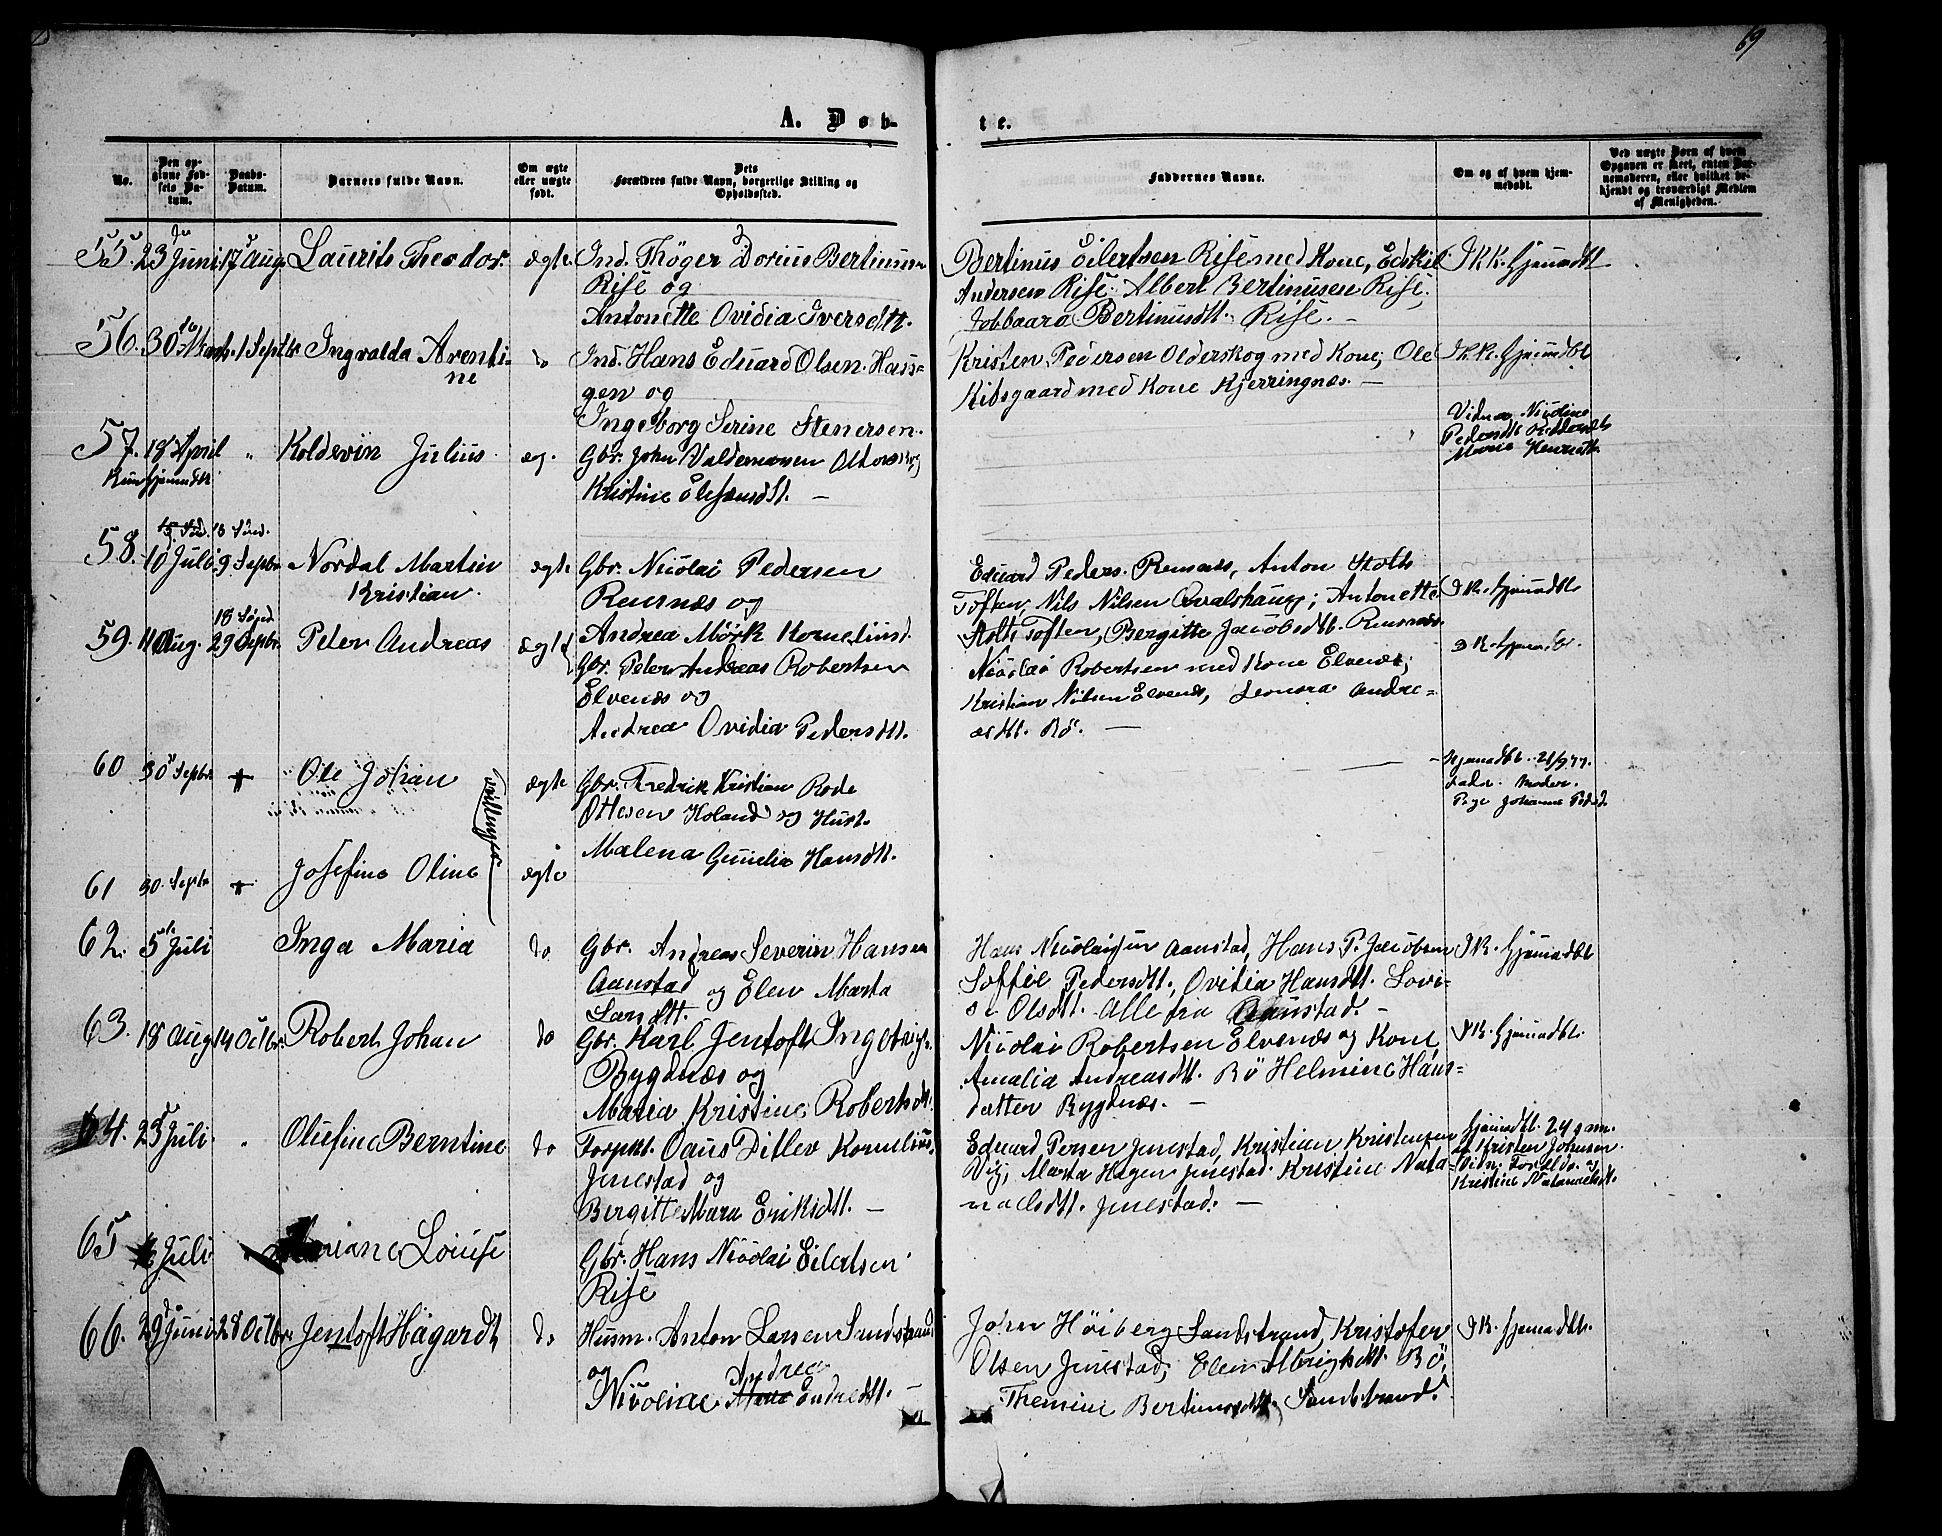 69
A. Døb-
te.
No.
Den op-
givne Fød-
sels Da-
tum.
Daabs-
Datum.
Barnets fulde Navn.
Om ægte
eller uægte
født.
Dets
Forældres fulde Navn, borgerlige Stilling og
Opholdssted.
Faddernes Navne.
Om og af hvem hjem-
medøbt.
Ved uægte Børn af hvem
Opgaven er skeet, enten Bar-
nemoderen, eller hvilket be-
kjendt og troværdigt Medlem
af Menigheden.
55. 23 Juni 17 Aug Laurits Theodor. ægte. Ind. Thøger Dorius Bertinus-
Rise og
Antonette Ovidia Iversdtt.
Bertinus Eilertsen Rise med Kone, Edskil
Andersen Rise. Albert Bertinusen Rise.
Bertinusdtt. Rise. —
J KK. Hjemmdbt
56. 30 1 Septbr Ingvalda Aventi-
ne
do Ind. Hans Eduard Olsen. Hass-
gen og
Ingeborg Serine Stenersen.
Kristen Pedersen Olderskog med Kone; Ole
Kibsgaard med Kone Kjerringnæs. —
J K. Hjemmdbt
57. 18 April " Koldevin Julius æg. Gbr. John Valdemarsen
Kun hjemmdbt
Kristine —
Vidner Nicoline
Pedersdtt
Marie Henriedtt.
58. 10 Juli 9 Septbr Nordal Martin
Kristian.
ægte Gbr. Nicolai Pedersen
Reinsnæs og
Andrea Mørk Korneliusd.
Eduard Peders. Anton Stolts
Toften, Nils Nilsen Qvalshaug; Antonette
Stolts Toften, Bergitte Jacobsdtt.
J K. Hjemmdbt
18 Sønd.
59. 11 Aug. 29 Septbr. Peter Andreas ægte Gbr. Peter Andreas Robertsen
Elvenæs og
Andrea Ovidia Pedersdtt.
Nicolai Robertsen med Kone Elvenæs;
Kristian Nilsen Elvenæs, Leonora Andre-
asdtt. Bö. —
J K. Hjemmdbt.
60 30 Septbr + Ole Johan ægte Gbr. Fredrik Kristian Rode
Ottesen Holand og Hust.
Malena Gunelia Hansdtt.
Hjemmdbt. 21/9 77.
Fader. Moder.
Pige Johanna
Tvillinger
61 30. Septbr + Josefine Oline ægte
62. 5 Juli Inga Maria do Gbr. Andreas Severin Hansen
Aanstad og Elen Marta
Larsdtt.
Hans Nicolaisen Aanstad, Hans P. Jacobsen
Soffie Pedersdtt., Ovidia Hansdtt. Lovi-
se Olsdtt. Alle fra Aanstad. —
J K. Hjemmdbt
63. 18 Aug 14 Octbr. Robert Johan do Gbr. Karl Jentoft Ingebrigts.
Bygdnæs og
Maria Kristine Robertsdtt.
Nicolai Robertsen Elvenæs og Kone,
Amalia Andreasdtt. Bö Helmine Hans-
datter Bygdnæs. —
J K. Hjemmdbt.
64. 25 Juli. " Olufine Berntine do Forpkt. Claus Ditlev Kornelius.
Jenestad og
Bergitte Mara Eriksdtt. —
Eduard Persen Jenestad, Kristian Kristensen
Vig, Marta Hagen Jenestad. Kristine Nata-
naelsdtt. Jenestad. —
Hjemmdbt. 24 gam.
af Kristen Johnsen
Vidn. Foreldr. og
Kristine Natanaelsdt.
65 6 Juli Louise
Gbr. Hans Nicolai Eilertsen
Rise
66. 29 Juni 28 Octbr. Jentoft Hagardt do Husm. Anton Larsen Sandstrand
og Andrea
Nicoline Endredtt. —
John Höiberg Sandstrand, Kristofer
Olsen Jenestad; Elen Albrigtsdtt. Bö,
Themine Bertinusdtt. Sandstrand.
J K. Hjemmdbt.